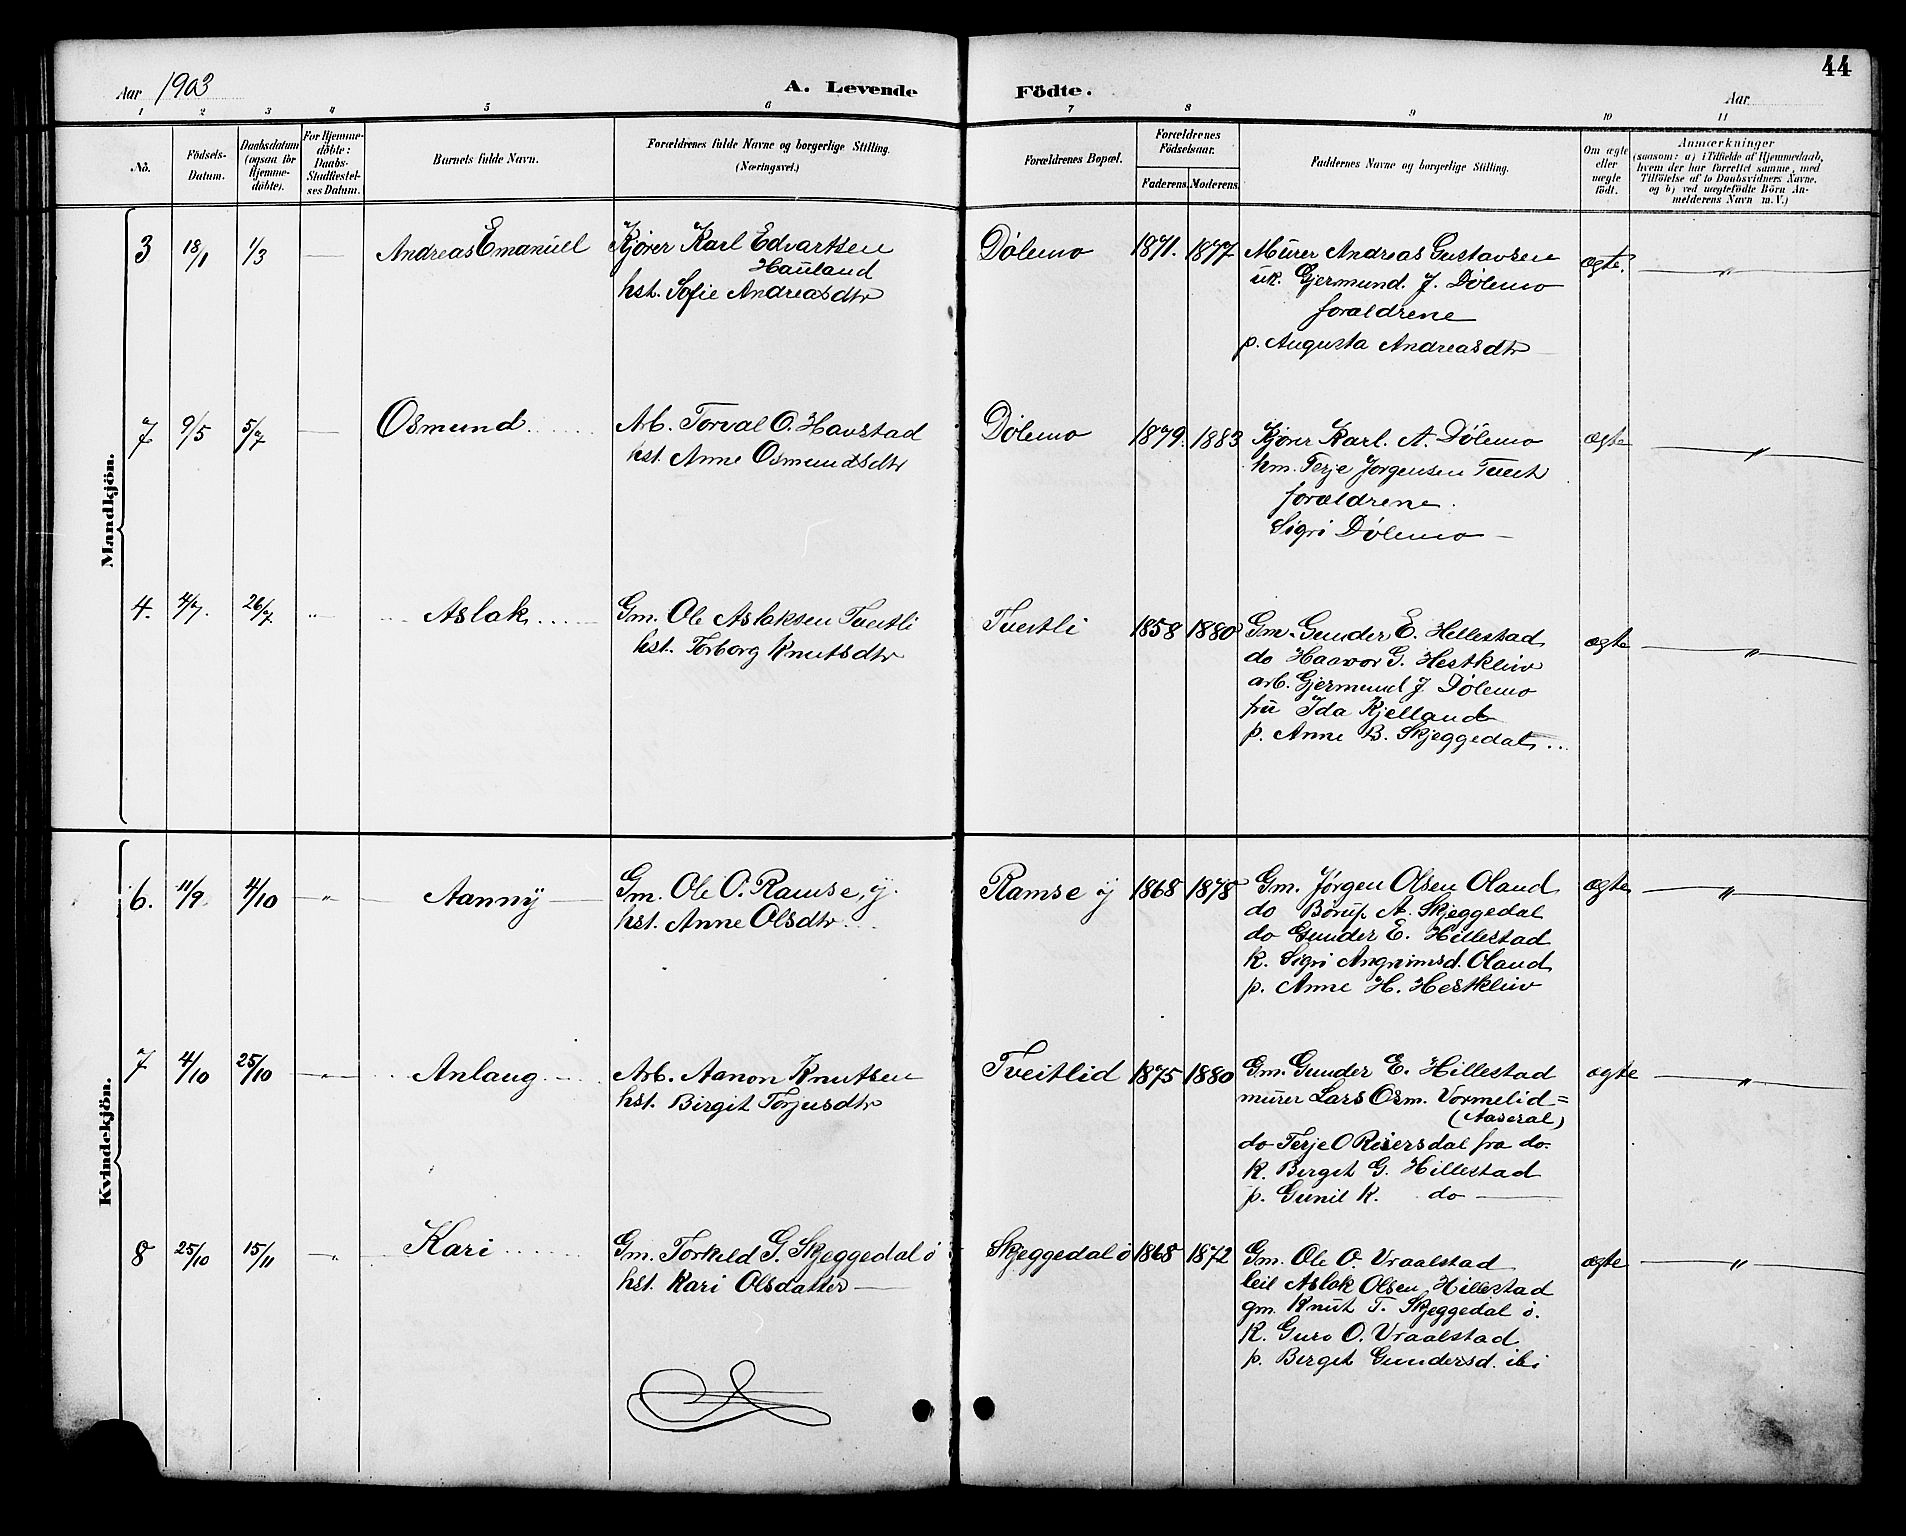 44
Aar 1903
A. Levende Födte.
Aar
1 2 3 4 5 6 7 8 9 10 11
No.
Födsels-
Datum.
Daabsdatum
(ogsaa for
Hjemme-
döbte).
For Hjemme-
döbte:
Daabs-
Stadfæstel-
ses Datum.
Barnets fulde Navn.
Forældrenes fulde Navne og borgerlige Stilling.
(Næringsvei.)
Forældrenes Bopæl.
Forældrenes
Födselsaar.
Faderens. Moderens.
Faddernes Navne og borgerlige Stilling.
Om ægte
eller
uægte
födt.
Anmærkninger
(saasom: a) i Tilfælde af Hjemmedaab,
hvem der har forrettet samme, med
Tilföielse af to Daabsvidners Navne,
og b) ved uægtefödte Börn An-
melderens Navn m. V.)
Mandkjön.
3 18/1 1/3 — Andreas Emanuel
Kjører Karl Edvartsen
Hauland
hst. Sofie Andreasdtr
Dölemo 1871. 1877
Murer Andreas Gustavsen
uk. Gjermund J. Dölemo
forældrene
p. Augusta Andreasdtr
ægte. — " —
7 9/5 5/7 — Osmund
Arb. Torval O. Havstad
hst. Anne Osmundsdtr
Dölemo 1879. 1883
Kjører Karl. A. Dölemo
hm. Terje Jorgensen Tveit
forældrene.
Sigri Dölemo —
ægte — " —
4. 4/7. 26/7 " Aslak
Gm. Ole Aslaksen Tveitli
hst. Torborg Knutsdtr
Tveitli 1858 1880
Gm. Gunder E. Hillestad
do Haavor G. Hestkleiv
arb. Gjermund J. Dölemo
fru Ida Kjelland
p. Anne B. Skjeggedal
ægte — " —
Kvindekjön.
6. 11/9 4/10 — " — Aanny —
Gm. Ole O. Ramse, y.
hst. Anne Olsdtr
Ramse y 1868 1878
Gm. Jørgen Olsen Oland
do Börup A. Skjeggedal
do Gunder E. Hillestad
k. Sigri Angrimsd. Oland
p. Anne H. Hestkleiv
ægte — " —
7 4/10 25/10 — " — Anlaug
Arb. Aanon Knutsen
hst. Birgit Torjusdtr
Tveitlid 1875 1880
Gm. Gunder E. Hillestad
murer Lars Osm. Vormelid =
(Aaseral)
do Terje O Reiersdal fra do.
k. Birget G. Hillestad
p. Gunil K. do —
ægte — " —
8 25/10 15/11 — " — Kari
Gm. Torkild G. Skjeggedal ö
hst. Kari Olsdatter —
Skjeggedal ö 1868 1872
Gm. Ole O. Vraalstad
leil Aslak Olsen Hillestad
gm. Knut T. Skjeggedal ö.
k. Guro O. Vraalstad
p. Berget Gundersd. ibi
ægte — " —